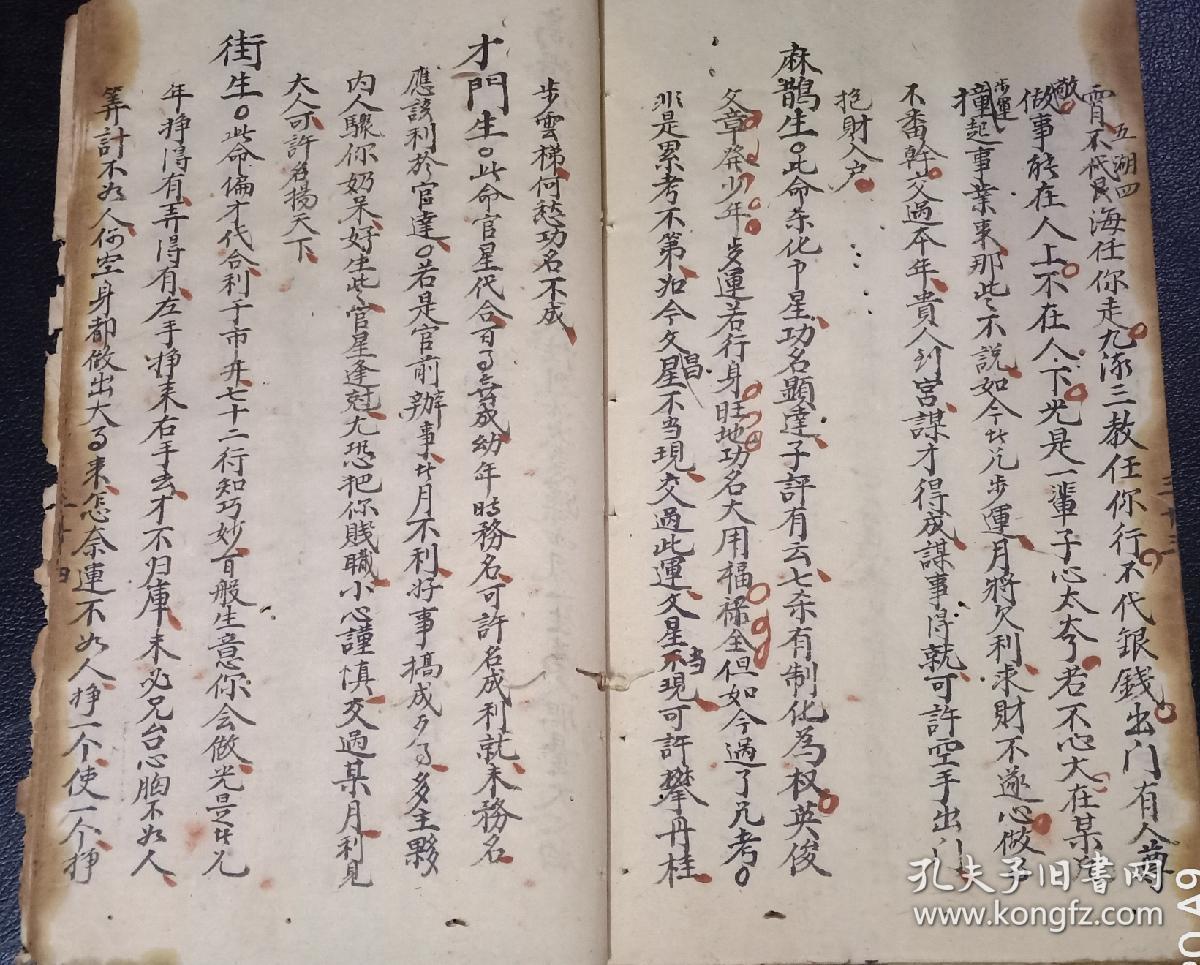 五湖四
霄不代艮海任你走九流三教任你行不代銀錢出门有人尊
敬
做事能在人上不在人下光是一輩子心太夸若不心大在某
步運
撞起事業来那些不説如今此兄步運月將欠利求財不遂心做事
不番幹交過夲年貴人到宫謀才得成謀事得就可許空手出门
抱財入户
麻鵲生此命杀化卩星功名顯達子評有云七杀有制化為权英俊
文章発少年步運若行身旺地功名大用福禄全但如今過了几考
非是累考不第如今文昌星不当現交過此運文星当現可許攀丹桂
步雲梯何愁功名不成
才門生此命官星代合百事喜成幼年時務名可許名成利就未務名
應該利於官達若是官前辦事此月不利好事搞成歹事多主夥
内人騾你奶呆好生此官星逢尅尤恐把你賤職小心謹慎交過某月利見
大人可許名揚天下
街生此命倫才代合利于市井七十二行知巧妙百般生意你会做光是此兄
年掙得有弄得有左手掙来右手去才不归庫未必兄台心胸不如人
筭計不如人何空身都做出大事来怎奈運不如人掙一个使一个掙
孔夫子旧书网
www.kongfz.com